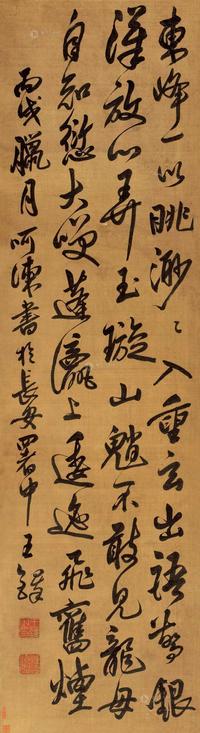 東峰一以眺渺ミ入重玄出語驚銀
漢放心弄玉璇山魈不敢見龍母
自知愆大笑蓬瀛上逶迤飛舊煙
丙戌臘月呵凍書於長安署中王鐸